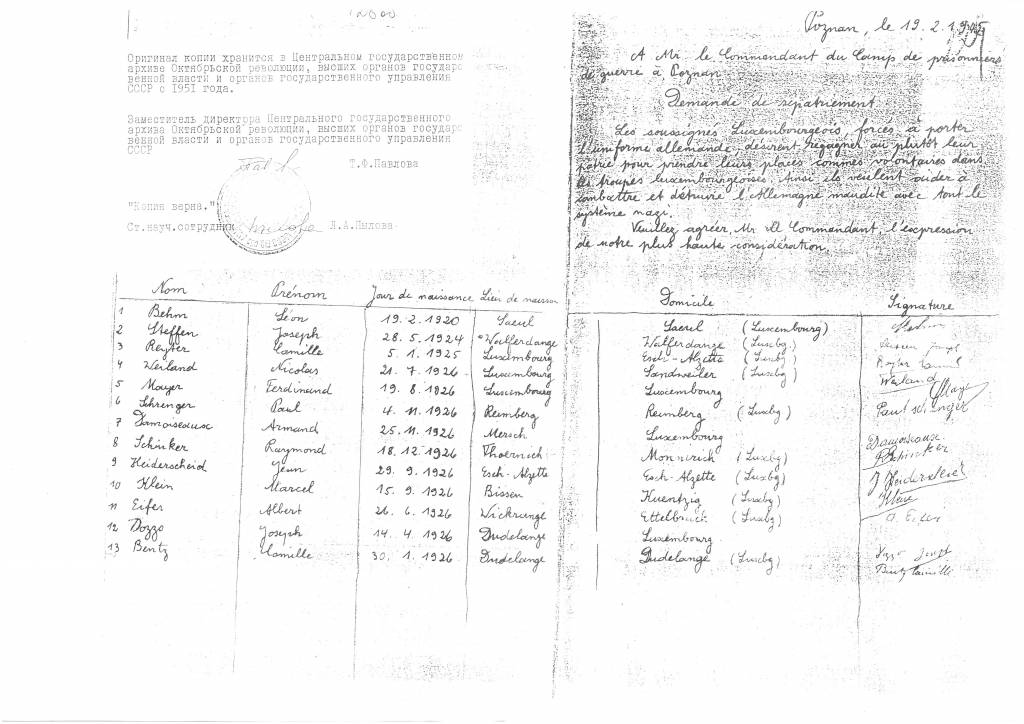 12000
Оригинал копии хранится в Центральном государственном
архиве Октябрьской революции, высших органов государс
венной власти и органов государственного управления
СССР с 1951 года.
Заместитель директора Центрального государственного
архива Октябрьской революции, высших органов государс
венной власти и органов государственного управления
СССР
Т.Ф.Павлова
"Копия верна."
Ст.науч.сотрудник Л.А.Пылова
Poznan, le 19. 2. 1945
A Mr. le Commandant du Camp de prisonniers
de guerre à Poznan
Demande de repatriement
Les soussignés Luxembourgeois, forcés à porter
l'uniforme allemande, désirent regagner au plutôt leur
patrie pour prendre leurs places commes volontaires dans
les troupes luxembourgeoises. Ainsi ils veulent aider à
combattre et détruire l'Allemagne maudite avec tout le
système nazi.
Veuillez agréer, Mr. le Commandant, l'expression
de notre plus haute considération.
Nom Prénom Jour de naissance Lieu de naissan Domicile Signature
1 Behm Léon 19. 2. 1920 Saeul Saeul (Luxembourg)
2 Steffen Joseph 28. 5. 1924 Walferdange Walferdange (Luxbg.)
3 Reyter Camille 5. 1. 1925 Luxembourg Esch-Alzette (Luxbg)
4 Weiland Nicolas 21. 7. 1926 Luxembourg Sandweiler (Luxbg) Weiland
5 Mayer Ferdinand 19. 8. 1926 Luxembourg Luxembourg Mayer
6 Schrenger Paul 4. 11. 1926 Reimberg Reimberg (Luxbg) Paul
7 Damoiseaux Armand 25. 11. 1926 Mersch Luxembourg Damoiseaux
8 Schinker Raymond 18. 12. 1926 Monnerich (Luxbg) Schinker
9 Heiderscheid Jean 29. 9. 1926 Esch-Alzette Esch-Alzette (Luxbg)
10 Klein Marcel 15. 9. 1926 Bissen Kuentzig (Luxbg)
11 Eifer Albert 26. 6. 1926 Wickrange Ettelbruck (Luxbg) A. Eifer
12 Dozzo Joseph 14. 4. 1926 Dudelange Luxembourg
13 Bentz Camille 30. 1. 1926 Dudelange Dudelange (Luxbg) Bentz Camille